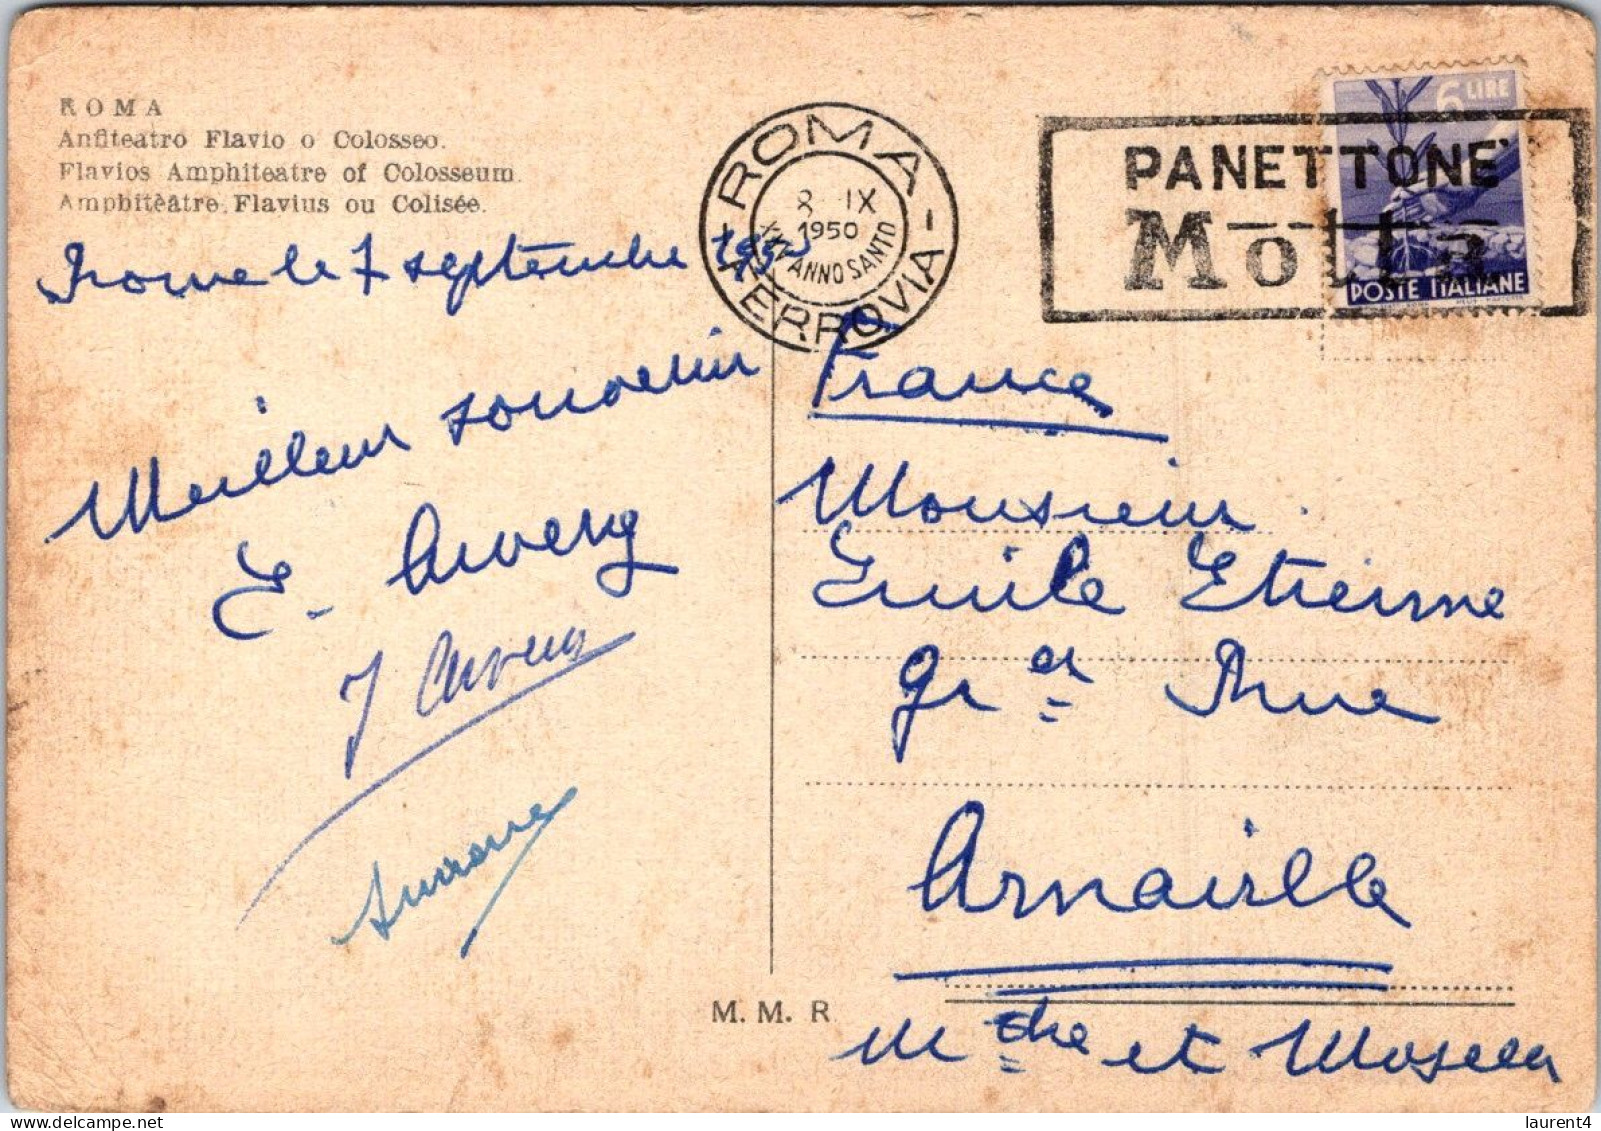 ROMA
Anfiteatro Flavio o Colosseo.
Flavios Amphiteatre of Colosseum
Amphitèâtre Flavius ou Colisée.
Rome le 7 septembre 1950
Meilleur souvenir
E. Auverg
J Auverg
ROMA
8 IX
1950
ANNO SANTO
FERROVIA
PANETTONE
Motta
6 LIRE
POSTE ITALIANE
France
Monsieur
Emile Etienne
Gr er Rue
Arnaville
M the et Moselle
M. M. R
delcampe.net
laurent4